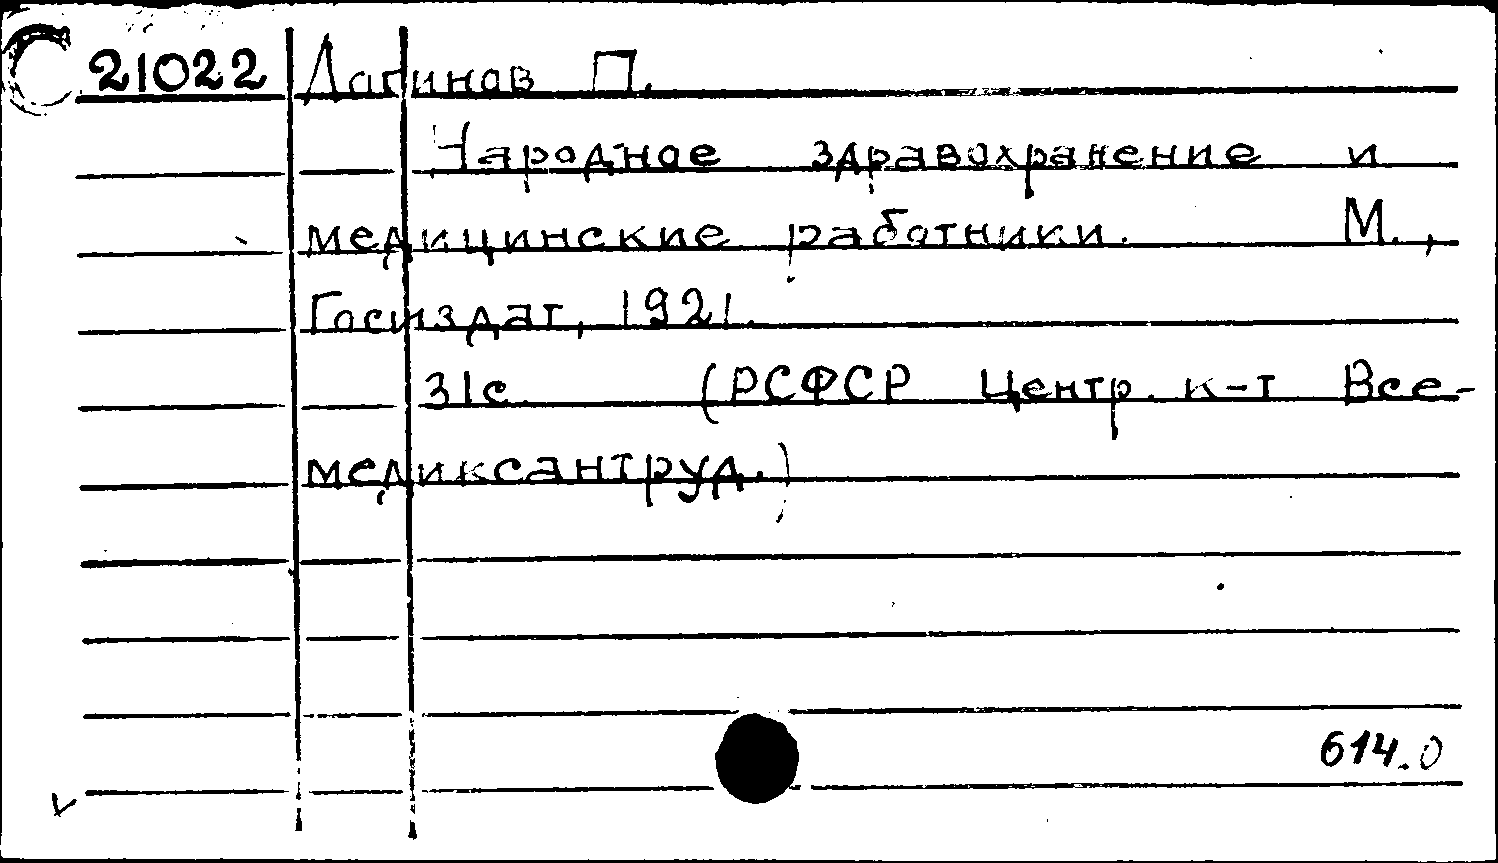 21022 Дагинов П.
Народное здравохранение и
медицинские работники. М.,
Госиздат, 1921.
31с. (РСФСР Центр. к-т Все-
медиксантруд.)
614.0